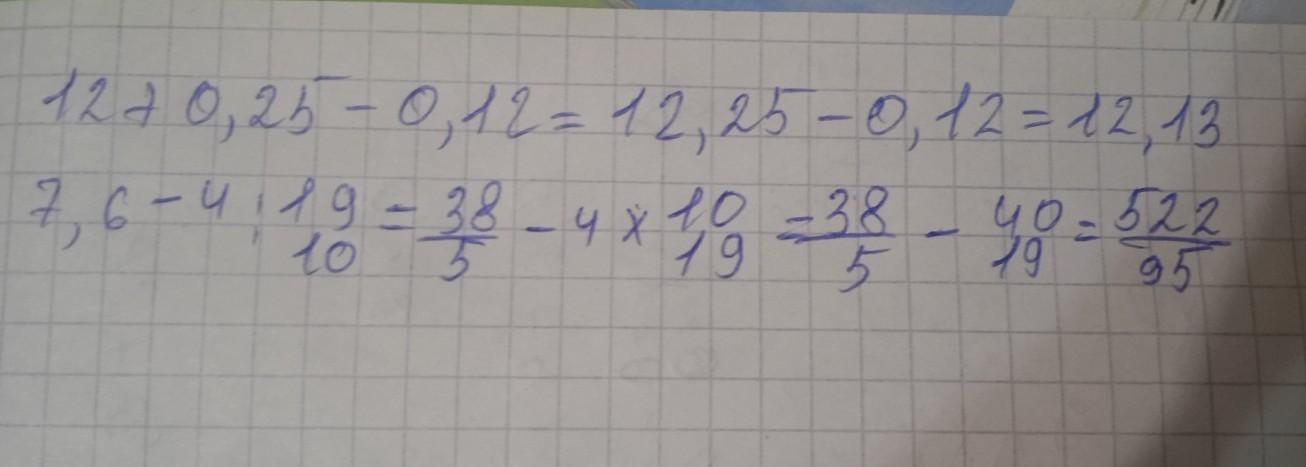 12+0,25-0,12=12,25-0,12=12,13
7,6-4:19/10=38/5-4×10/19=38/5-40/19=522/95